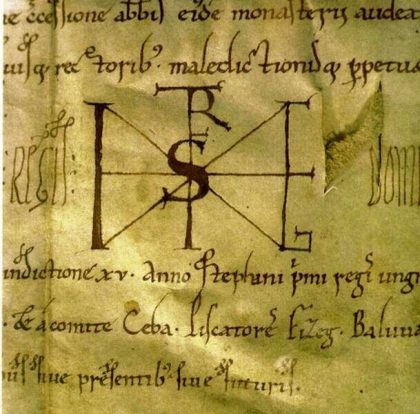 c̄cessione abb̄is eidē monasterii audeat
rectorib; maledictionisq; ꝑpetue
REGIS: DOMI
indictione xv. Anno Stephani p̄mi regis ungr
. & a comite Ceba. Piscatorē Fizeg. Baluua
siue presentib; siue futuris.